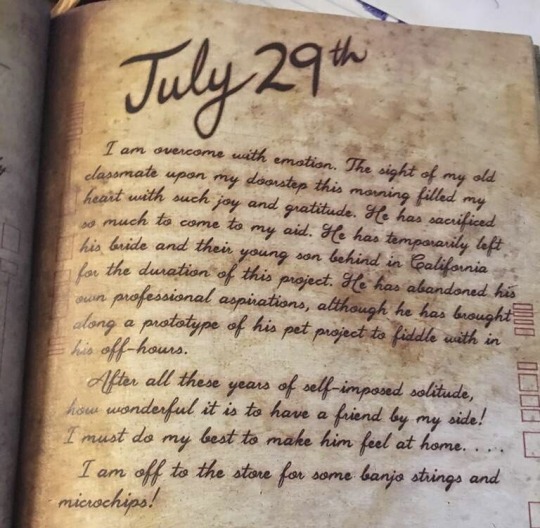 July 29th
I am overcome with emotion. The sight of my old
classmate upon my doorstep this morning filled my
heart with such joy and gratitude. He has sacrificed
so much to come to my aid. He has temporarily left
his bride and their young son behind in California
for the duration of this project. He has abandoned his
own professional aspirations, although he has brought
along a prototype of his pet project to fiddle with in
his off-hours.
After all these years of self-imposed solitude,
how wonderful it is to have a friend by my side!
I must do my best to make him feel at home. . . .
I am off to the store for some banjo strings and
microchips!